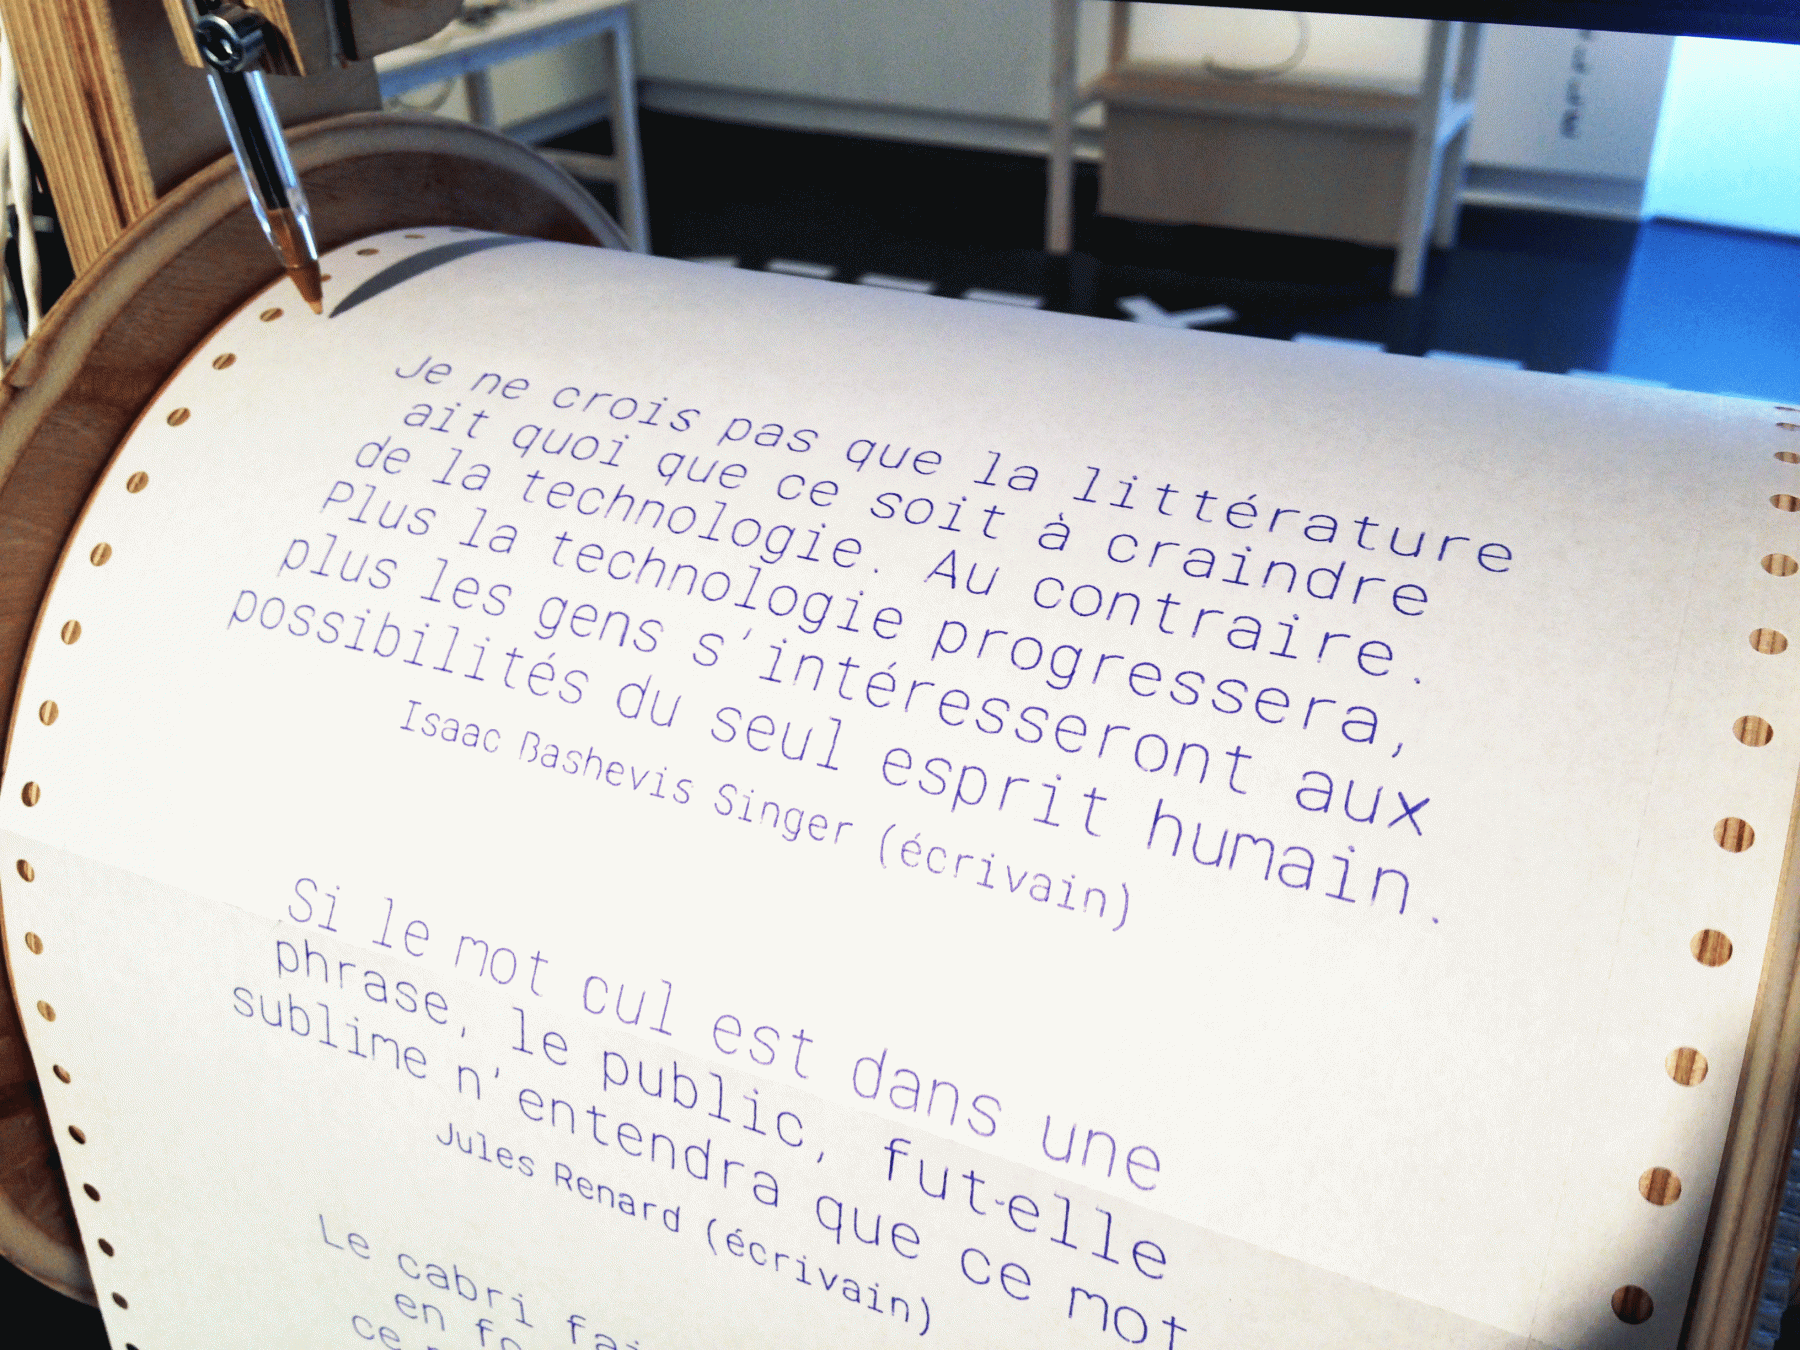 Je ne crois pas que la littérature
ait quoi que ce soit à craindre
de la technologie. Au contraire.
Plus la technologie progressera,
plus les gens s'intéresseront aux
possibilités du seul esprit humain.
Isaac Bashevis Singer (écrivain)
Si le mot cul est dans une
phrase, le public, fut-elle
sublime n'entendra que ce mot
Jules Renard (écrivain)
Le cabri
en
ce